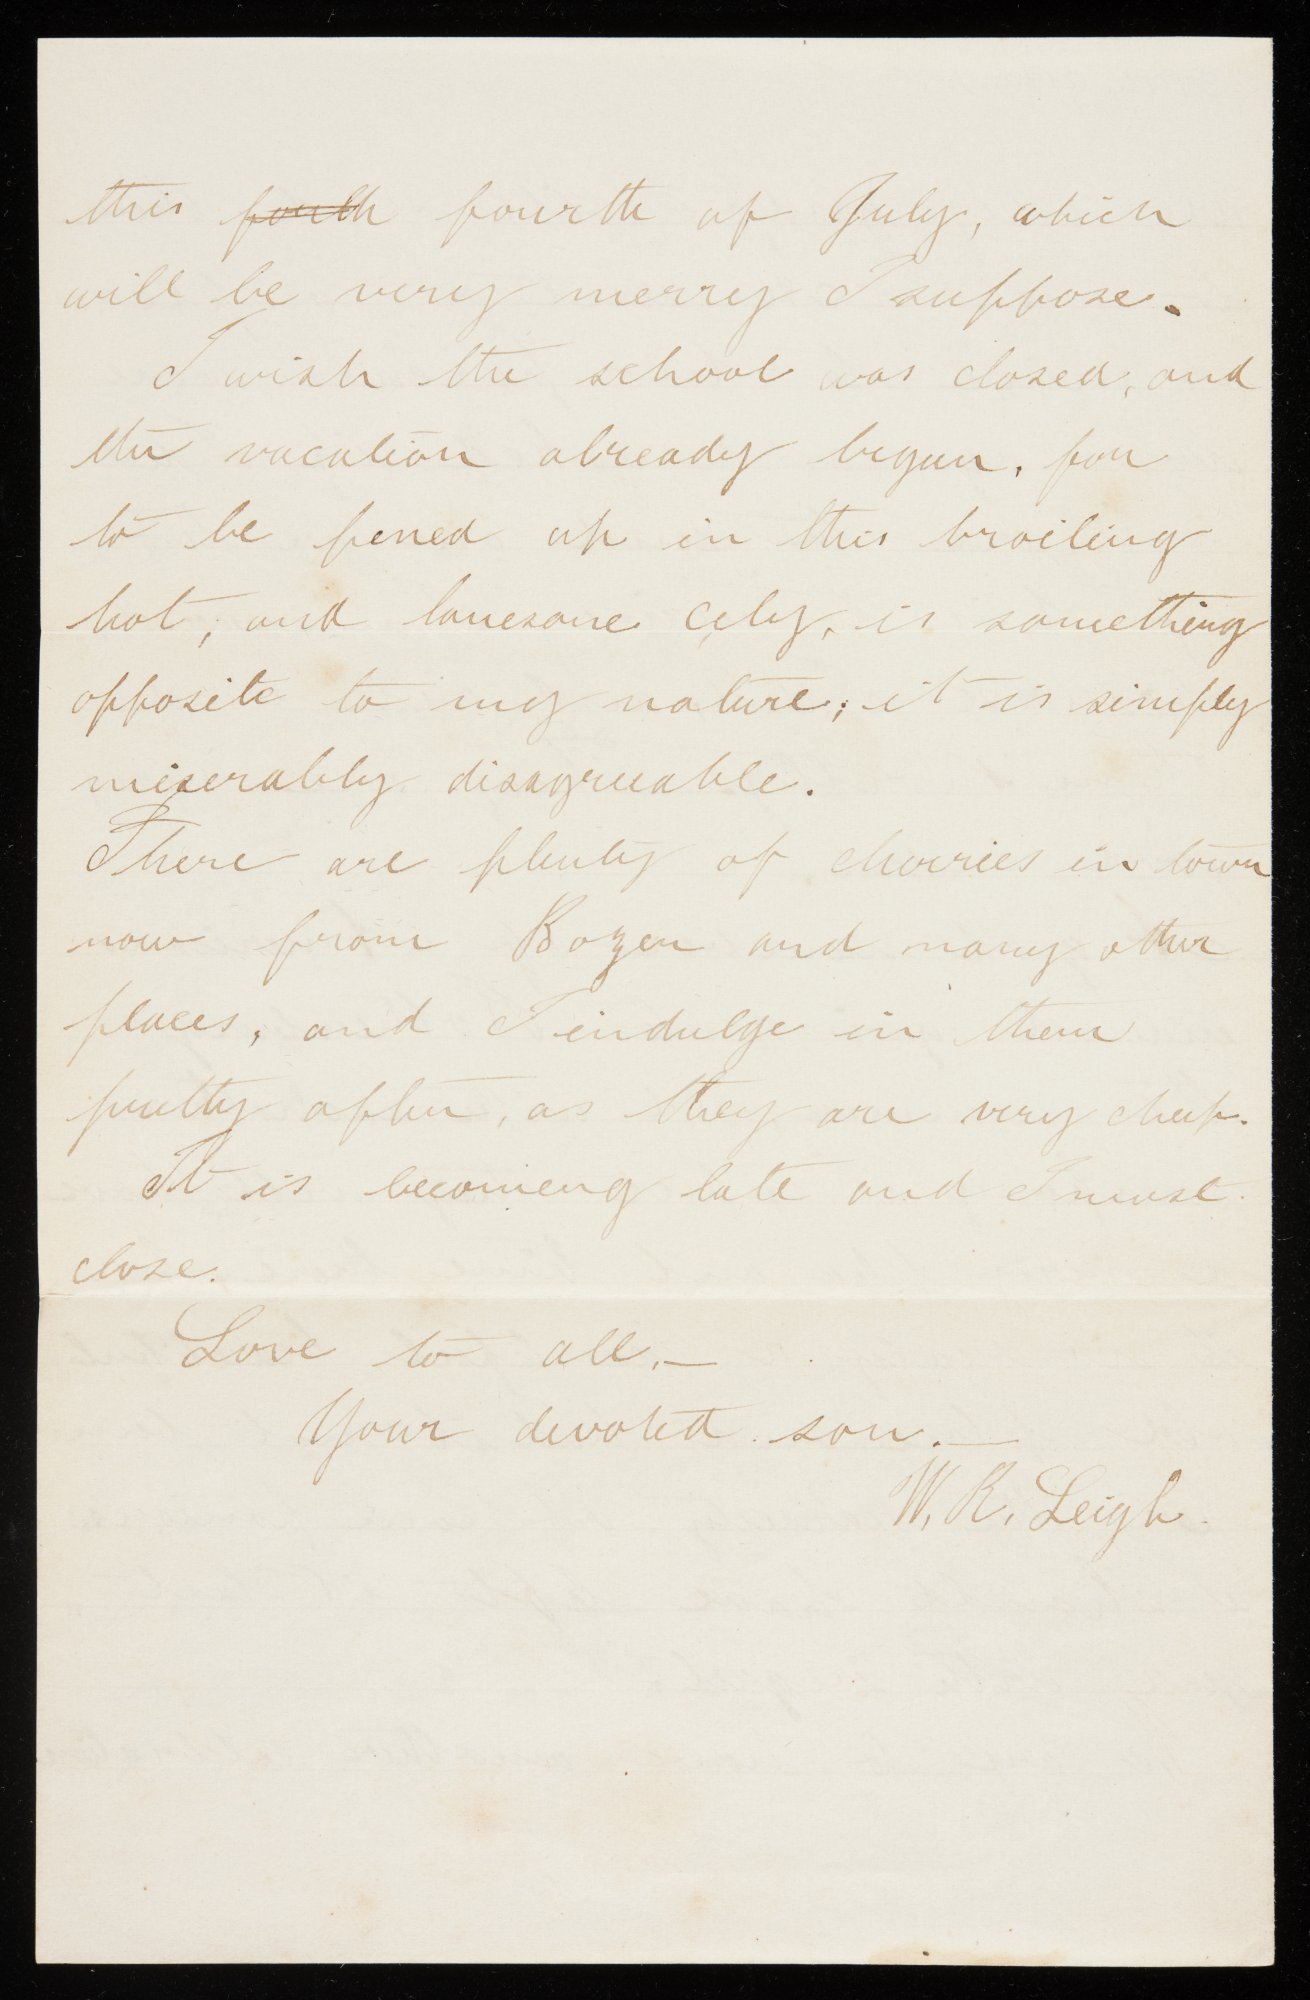 this fouth fourth of July, which
will be very merry I suppose.
I wish the school was closed, and
the vacation already begun, for
to be pened up in this broiling
hot, and lonesome city, is something
opposite to my nature; it is simply
miserably disagreeable.
There are plenty of cherries in town
now from Bozen and many other
places, and I indulge in them
pretty often, as they are very cheap.
It is becoming late and I must
close.
Love to all,—
Your devoted son.—
W. R. Leigh.